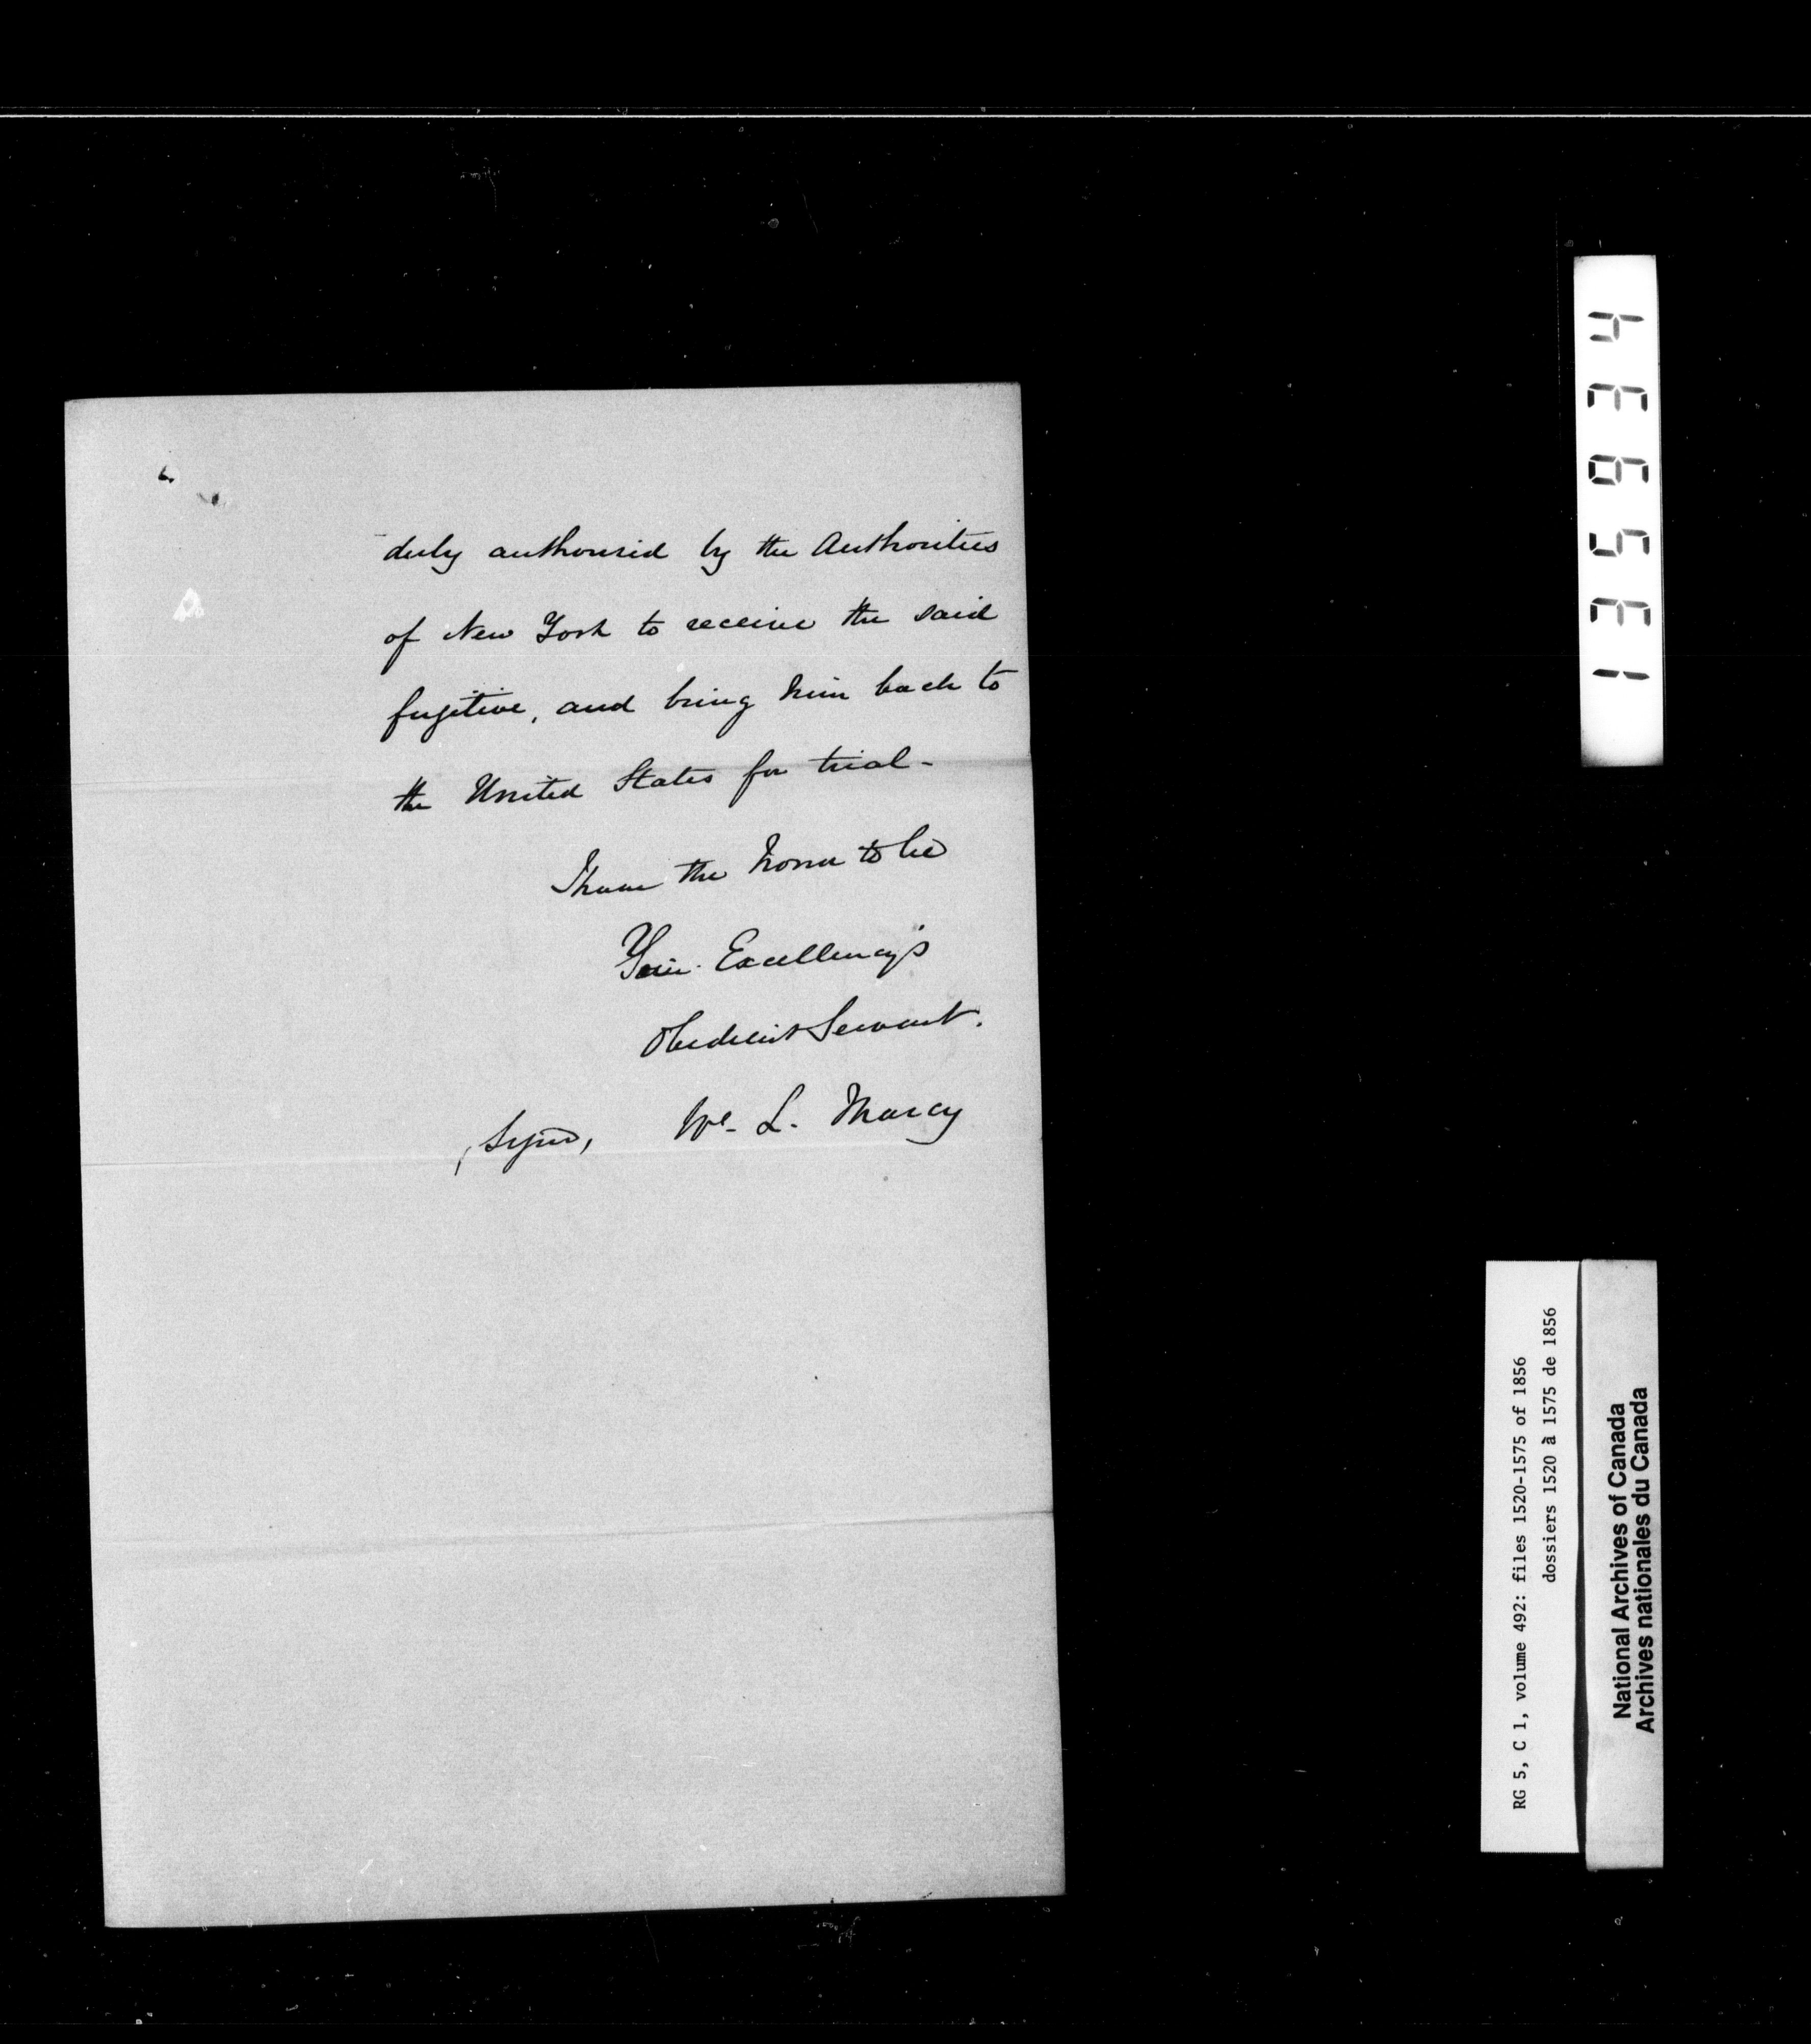 duly authorised by the Authorities
of New York to receive the said
fugitive, and bring him back to
the United States for trial -
I have the honor to be
Your Excellency's
Obedient Servant.
Signed, Wm. L. Marcy
135934
RG 5, C 1, volume 492: files 1520-1575 of 1856
dossiers 1520 à 1575 de 1856
National Archives of Canada
Archives nationales du Canada